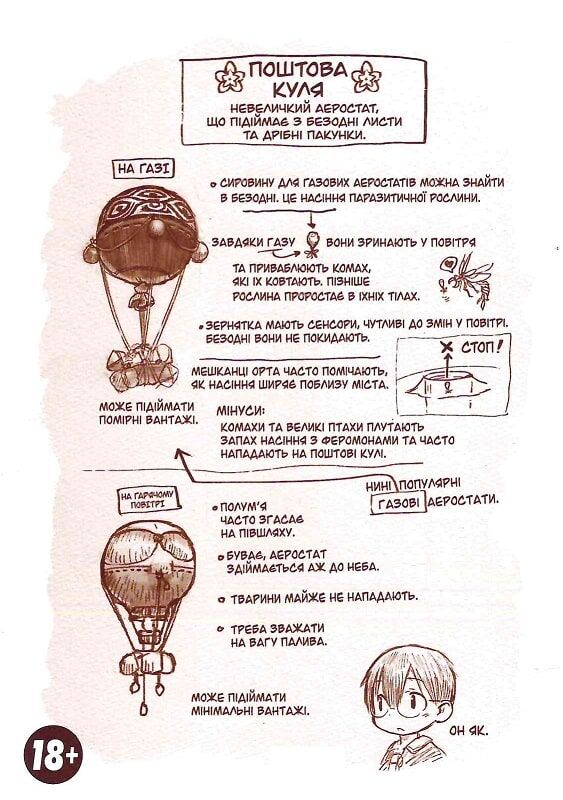 ПОШТОВА
КУЛЯ
НЕВЕЛИЧКИЙ АЕРОСТАТ,
ЩО ПІДІЙМАЄ З БЕЗОДНІ ЛИСТИ
ТА ДРІБНІ ПАКУНКИ.
НА ГАЗІ
• СИРОВИНУ ДЛЯ ГАЗОВИХ АЕРОСТАТІВ МОЖНА ЗНАЙТИ
В БЕЗОДНІ. ЦЕ НАСІННЯ ПАРАЗИТИЧНОЇ РОСЛИНИ.
ЗАВДЯКИ ГАЗУ ВОНИ ЗРИНАЮТЬ У ПОВІТРЯ
ТА ПРИВАБЛЮЮТЬ КОМАХ,
ЯКІ ЇХ КОВТАЮТЬ. ПІЗНІШЕ
РОСЛИНА ПРОРОСТАЄ В ЇХНІХ ТІЛАХ.
• ЗЕРНЯТКА МАЮТЬ СЕНСОРИ, ЧУТЛИВІ ДО ЗМІН У ПОВІТРІ.
БЕЗОДНІ ВОНИ НЕ ПОКИДАЮТЬ.
X СТОП!
МЕШКАНЦІ ОРТА ЧАСТО ПОМІЧАЮТЬ,
ЯК НАСІННЯ ШИРЯЄ ПОБЛИЗУ МІСТА.
МОЖЕ ПІДІЙМАТИ
ПОМІРНІ ВАНТАЖІ.
МІНУСИ:
КОМАХИ ТА ВЕЛИКІ ПТАХИ ПЛУТАЮТЬ
ЗАПАХ НАСІННЯ З ФЕРОМОНАМИ ТА ЧАСТО
НАПАДАЮТЬ НА ПОШТОВІ КУЛІ.
НИНІ ПОПУЛЯРНІ
ГАЗОВІ АЕРОСТАТИ.
НА ГАРЯЧОМУ
ПОВІТРІ
• ПОЛУМ'Я
ЧАСТО ЗГАСАЄ
НА ПІВШЛЯХУ.
• БУВАЄ, АЕРОСТАТ
ЗДІЙМАЄТЬСЯ АЖ ДО НЕБА.
• ТВАРИНИ МАЙЖЕ НЕ НАПАДАЮТЬ.
• ТРЕБА ЗВАЖАТИ
НА ВАГУ ПАЛИВА.
МОЖЕ ПІДІЙМАТИ
МІНІМАЛЬНІ ВАНТАЖІ.
ОН ЯК.
18+